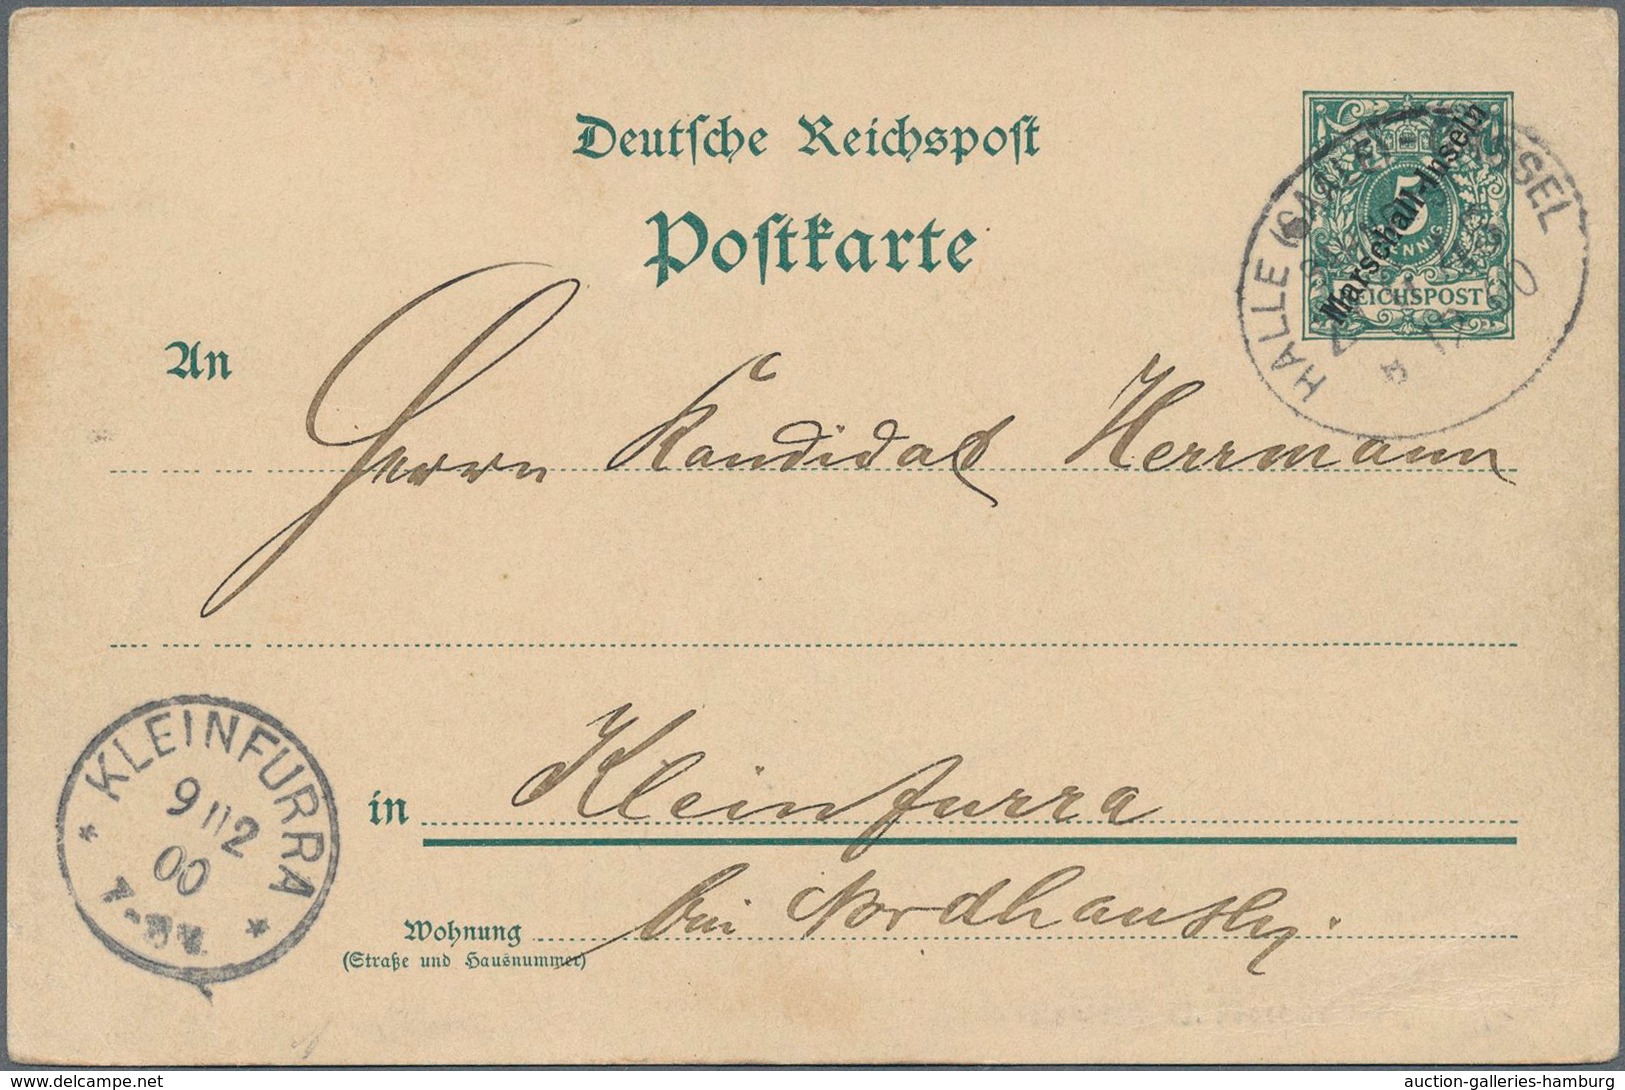 Deutsche Reichspost
Postkarte
5
REICHSPOST
Marschall-Inseln
HALLE (SAALE)
An
Herrn Kandidat Herrmann
in Kleinfurra
bei Nordhausen.
Wohnung
(Straße und Hausnummer)
KLEINFURRA
9 11 2
00
auction-galleries-hamburg